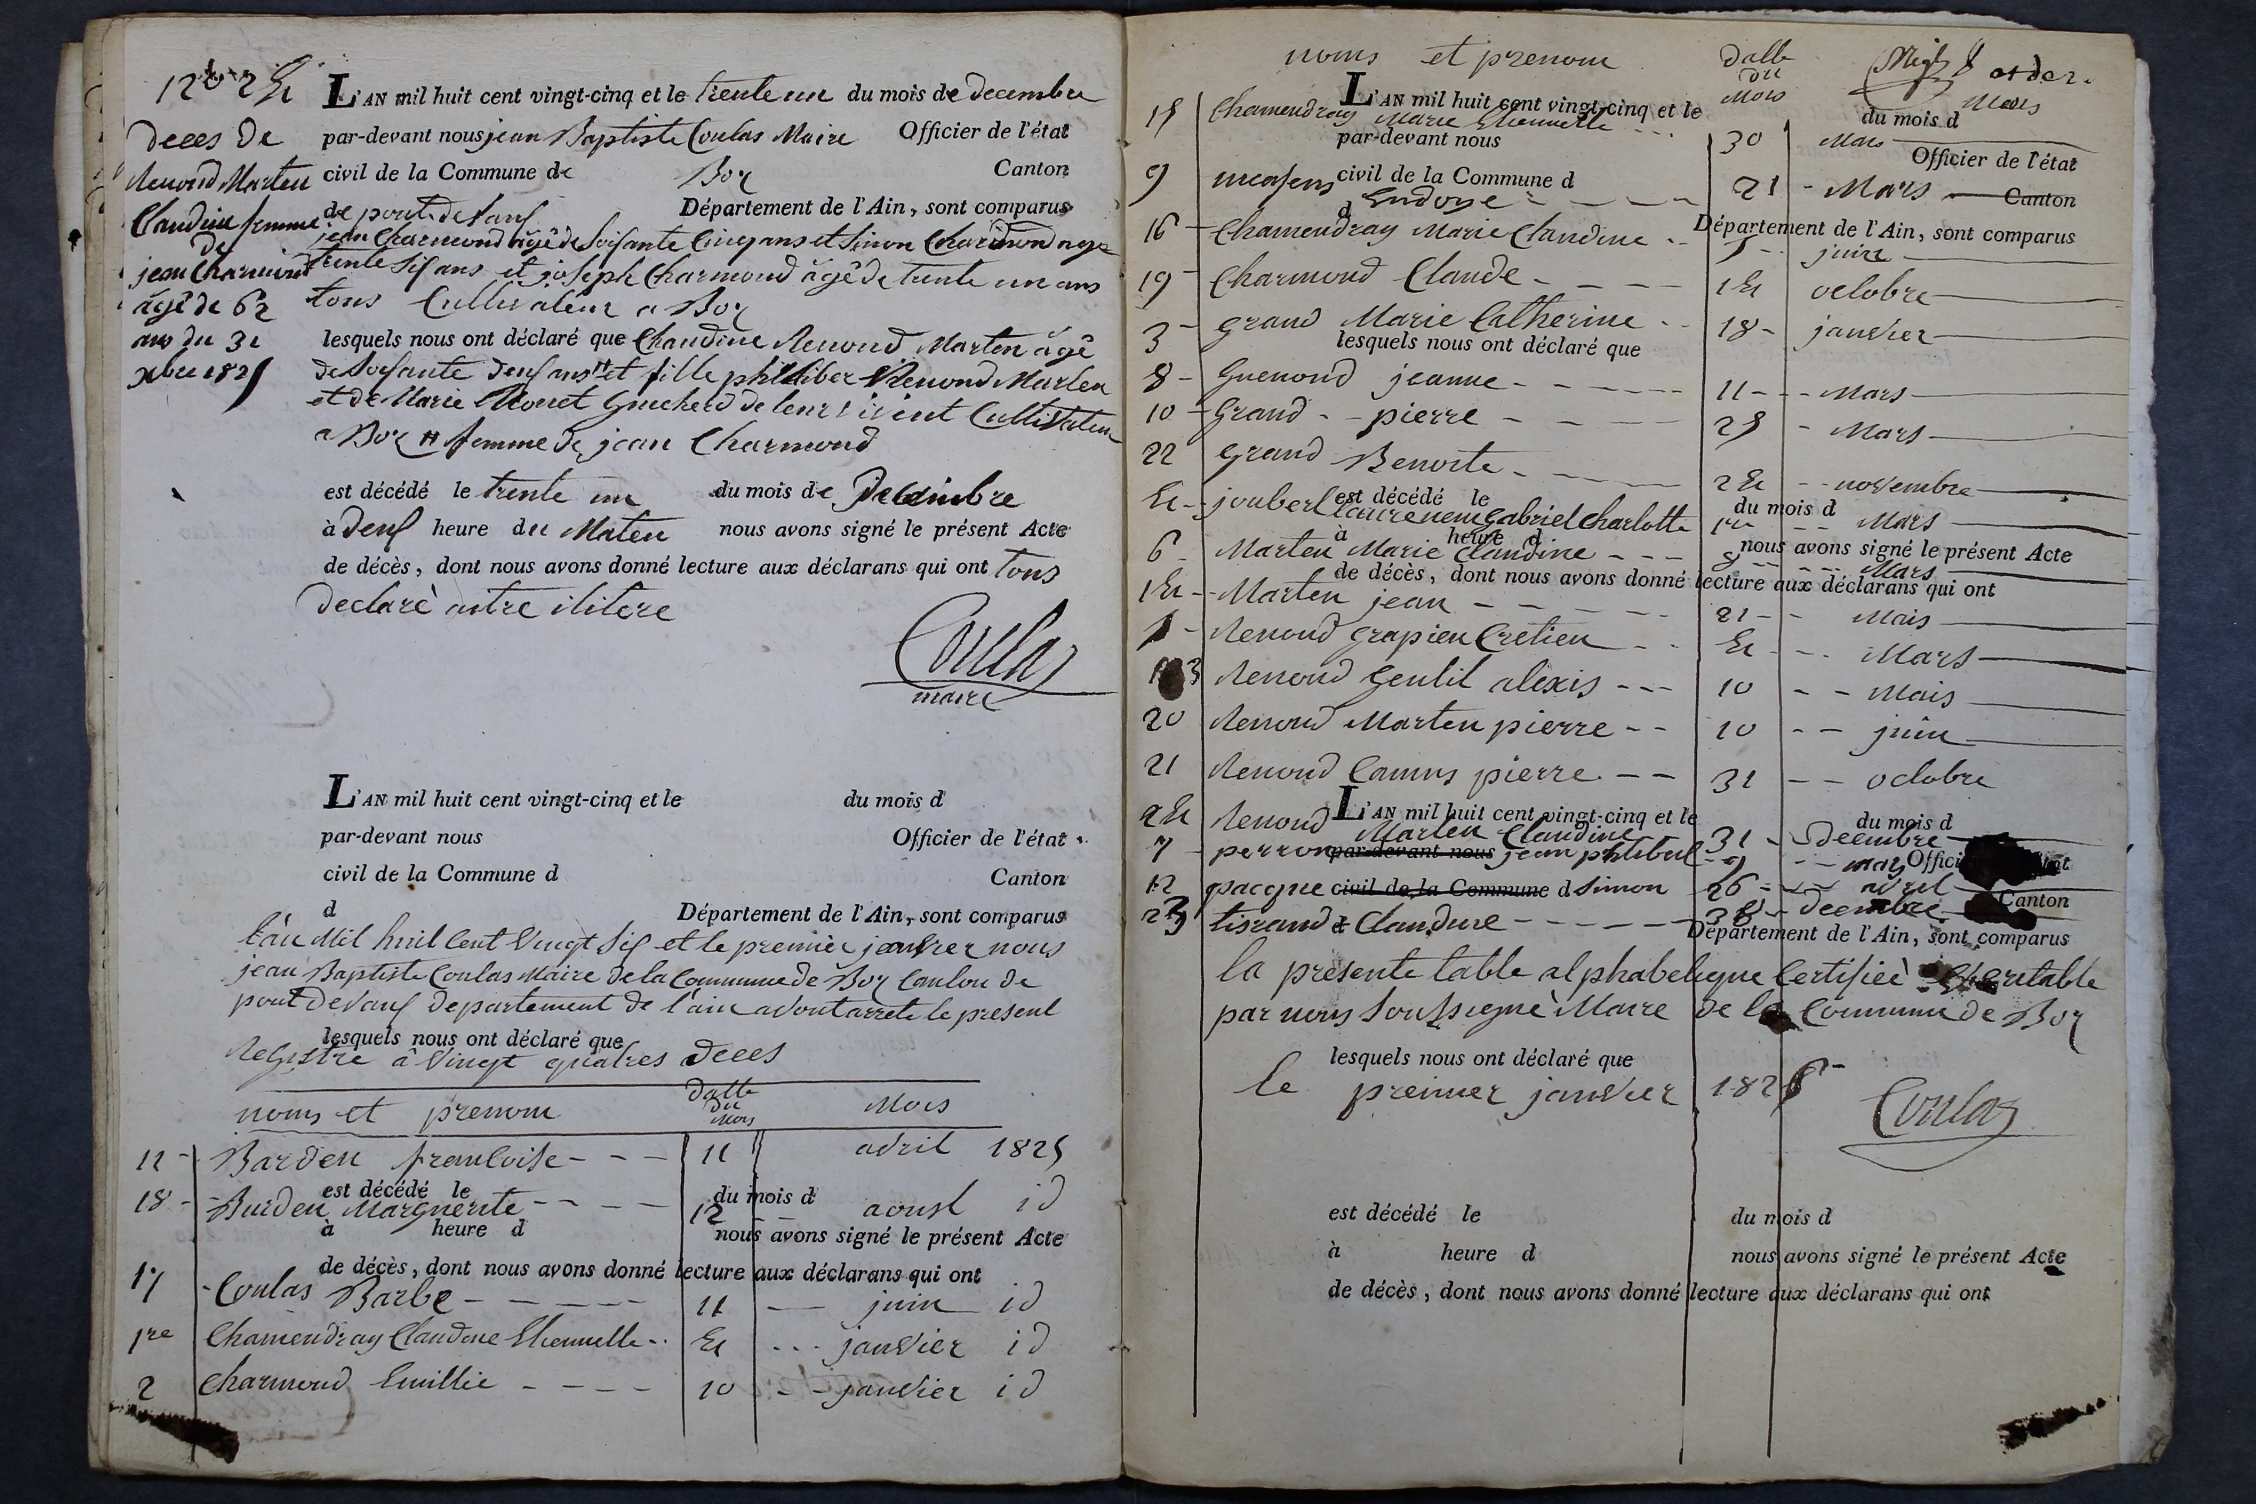 deces de
Renond Marten
Claudine femme
de
jean Charmond
âgé de 62
ans du 31
xbre 1825
L'AN mil huit cent vingt-cinq et le trente un du mois de decembre
par-devant nous jean Baptiste Coulas Maire Officier de l'état
civil de la Commune de Boz Canton
de pont de Vaux Département de l'Ain, sont comparus
jean Charmond âgé de Soisante Cinq ans et Simon Charmond age
trente Six ans et joseph Charmond âgé de trente un ans
tous Cultivateur a Boz
lesquels nous ont déclaré que Claudine Renond Marten âgé
de Soisante deux ans # et fille philiber Renond Marten
et de Marie Monet Guicherd de leur vivent Cultivateur
a Boz # femme de jean Charmond
est décédé le trente un du mois de Decembre
à deux heure du Maten nous avons signé le présent Acte
de décès, dont nous avons donné lecture aux déclarans qui ont tous
declaré aitre ilitere
Coulas
maire
L'AN mil huit cent vingt-cinq et le du mois d
par-devant nous Officier de l'état
civil de la Commune d Canton
d Département de l'Ain, sont comparus
l'an Mil huit Cent Vingt Six et le premier janvier nous
jean Baptiste Coulas Maire de la Commune de Boz Canton de
pont de Vaux departement de l'ain avont arrete le present
lesquels nous ont déclaré que
Registre â Vingt quatres deces
noms et prenom datte du Mois Mois
11 Barden francoise 11 avril 1825
est décédé le du mois d
18 Burden Marguerite 12 aoust id
à heure d nous avons signé le présent Acte
de décès, dont nous avons donné lecture aux déclarans qui ont
17 Coulas Barbe 11 juin id
1re Chamendray Claudine Etiennette 4 janvier id
2 Charmond Emillie 10 janvier id
noms et prenom datte du Mois Mois
L'AN mil huit cent vingt-cinq et le du mois d
15 Chamendray Marie Etiennette 30 Mars
par-devant nous Officier de l'état
civil de la Commune d Canton
9 21 Mars
d Département de l'Ain, sont comparus
16 Chamendray Marie Claudine 5 juin
19 Charmond Claude 14 octobre
3 Grand Marie Catherine 18 janvier
lesquels nous ont déclaré que
8 Guenond jeanne 11 Mars
10 Grand pierre 25 Mars
22 Grand Benoite 24 novembre
est décédé le du mois d
4 joubert Gabriel Charlotte 1re Mars
à heure d nous avons signé le présent Acte
6 Marten Marie Claudine Mars
de décès, dont nous avons donné lecture aux déclarans qui ont
14 Marten jean 21 Mais
5 Renond Grapien Cretien 4 Mars
13 Renond Gentil alexis 10 Mais
20 Renond Marten pierre 10 juin
21 Renond Camus pierre 31 octobre
L'AN mil huit cent vingt-cinq et le du mois d
24 Renond Marten Claudine 31 Decembre
par-devant nous
7 perron jean philibert 9 mars
12 pacque Simon 26 avril
civil de la Commune d Canton
23 tisrand Claudine Decembre
Département de l'Ain, sont comparus
la présente table alphabetique Certifieè Veritable
par nous Soussigné Maire de la Commune de Boz
lesquels nous ont déclaré que
le preimier janvier 1826
Coulas
est décédé le du mois d
à heure d nous avons signé le présent Acte
de décès, dont nous avons donné lecture aux déclarans qui ont